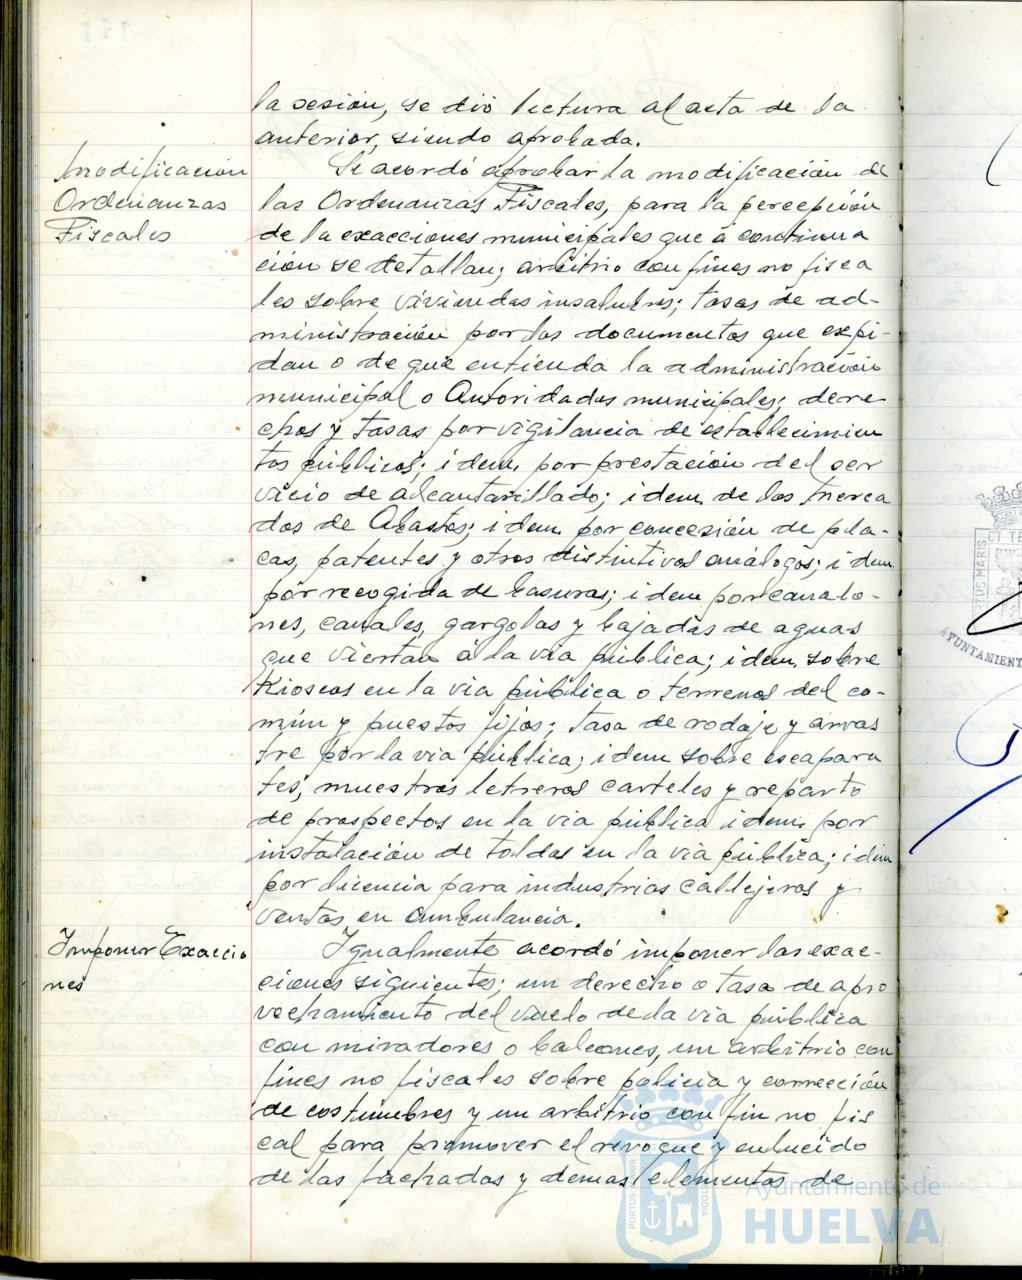 la sesión, se dió lectura al acta de la
anterior, siendo aprobada.
Modificación
Ordenanzas
Fiscales
Se acordó aprobar la modificación de
las Ordenanzas Fiscales, para la percepción
de la exacciones municipales que á continua
ción se detallan; arbitrio con fines no fisca
les sobre viviendas insalubres; tasas de ad-
ministración por los documentos que expi-
dan o de que entienda la administración
municipal o Autoridades municipales; dere
chos y tasas por vigilancia de establecimien
tos públicos; idem, por prestación del ser
vicio de alcantarillado; idem de los merca
dos de Abastos; idem por concesión de pla-
cas, patentes y otros distintivos análogos; idem
por recogida de basuras; idem por canalo-
nes, canales, gargolas y bajadas de aguas
que viertan á la via pública; idem, sobre
Kioscos en la via pública o terrenos del co-
mún y puestos fijos; tasa de rodaje y arras
tre por la via pública; idem sobre escapara
tes, muestras letreros carteles y reparto
de prospectos en la via pública idem por
instalación de toldos en la via pública; idem
por licencia para industrias callejeras y
ventas en ambulancia.
Imponer Exaccio
nes
Igualmente acordó imponer las exac-
ciones siguientes; un derecho o tasa de apro
vechamiento del vuelo de la via pública
con miradores o balcones, un arbitrio con
fines no fiscales sobre policía y corrección
de costumbres y un arbitrio con fin no fis
cal para promover el revoque y enlucido
de las fachadas y demas elementos de
PORTUS MARIS
AYUNTAMIENTO
Ayuntamiento de
HUELVA